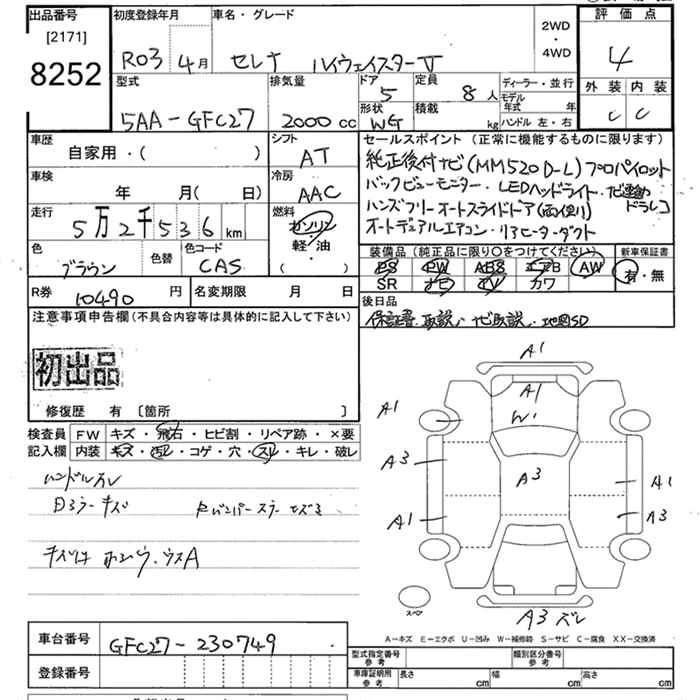 出品番号 初度登録年月 車名・グレード 2WD・4WD 評価点
[2171]
8252
R03 4月 セレナ ハイウェイスターV 4
型式 排気量 ドア 定員 ディーラー・並行 外装 内装
5AA-GFC27 2000cc 5 8人 モデル年式 年 C C
形状 積載 ハンドル 左・右
WG kg
車歴 シフト セールスポイント(正常に機能するものに限ります)
自家用・( ) AT
純正後付ナビ(MM520D-L)プロパイロット
車検 冷房 バックビューモニター・LEDヘッドライト・ナビ連動ドラレコ
年 月(日) AAC ハンズフリーオートスライドドア(両側)
走行 燃料 オートデュアルエアコン・リアヒーターダクト
5万2千536km ガソリン
軽・油
( )
色 色替 色コード 装備品(純正品に限り○をつけてください) 新車保証書
ブラウン CAS PS PW ABS エアB AW 有・無
SR ナビ TV カワ
R券 10490円 名変期限 月 日 後日品
保証書.取説.ナビ取説.地図SD
注意事項申告欄(不具合内容等は具体的に記入して下さい)
初出品
修復歴 有 [箇所 ]
検査員 FW キズ・飛石・ヒビ割・リペア跡・×要
記入欄 内装 キズ・汚レ・コゲ・穴・スレ・キレ・破レ
ハンドルスレ
A1
A1
W1
A1
A3
A3
A1
A1
A3
A3 ズレ
スペア
A-キズ E-エクボ U-凹み W-補修跡 S-サビ C-腐食 XX-交換済
車台番号 GFC27-230749
登録番号
型式指定番号 参考 類別区分番号 参考
車庫証明用 参考 長さ cm 幅 cm 高さ cm